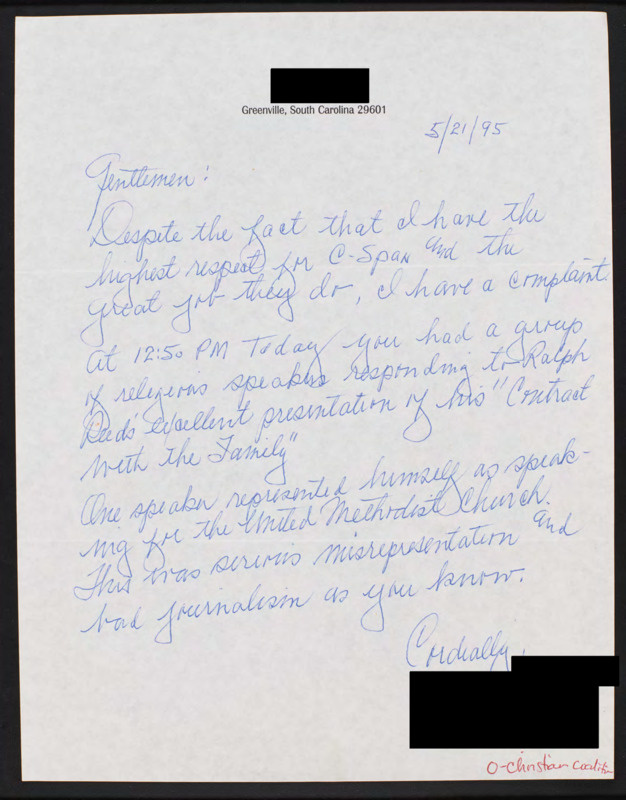 Greenville, South Carolina 29601
5/21/95
Gentlemen:
Despite the fact that I have the
highest respect for C-Span and the
great job they do, I have a complaint.
At 12:50 PM Today you had a group
of religious speakers responding to Ralph
Reed's excellent presentation of his "Contract
with the Family"
One speaker represented himself as speak-
ing for the United Methodist Church.
This was serious misrepresentation and
bad journalism as you know.
Cordially,
O-Christian Coalition